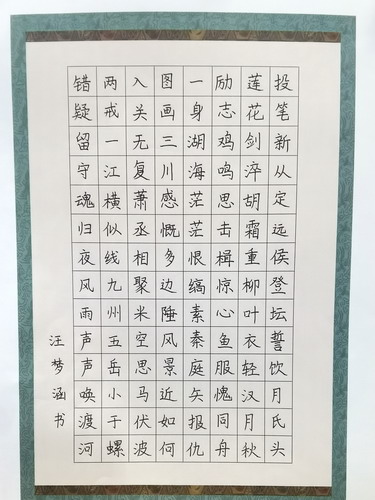 投笔新从定远侯登坛誓饮月氏头
莲花剑淬胡霜重柳叶衣轻汉月秋
励志鸡鸣思击楫惊心鱼服愧同舟
一身湖海茫茫恨缟素秦庭矢报仇
图画三川感慨多边陲风景近如何
入关无复萧丞相聚米空思马伏波
两戒一江横似线九州五岳小于螺
错疑留守魂归夜风雨声声唤渡河
汪梦涵书